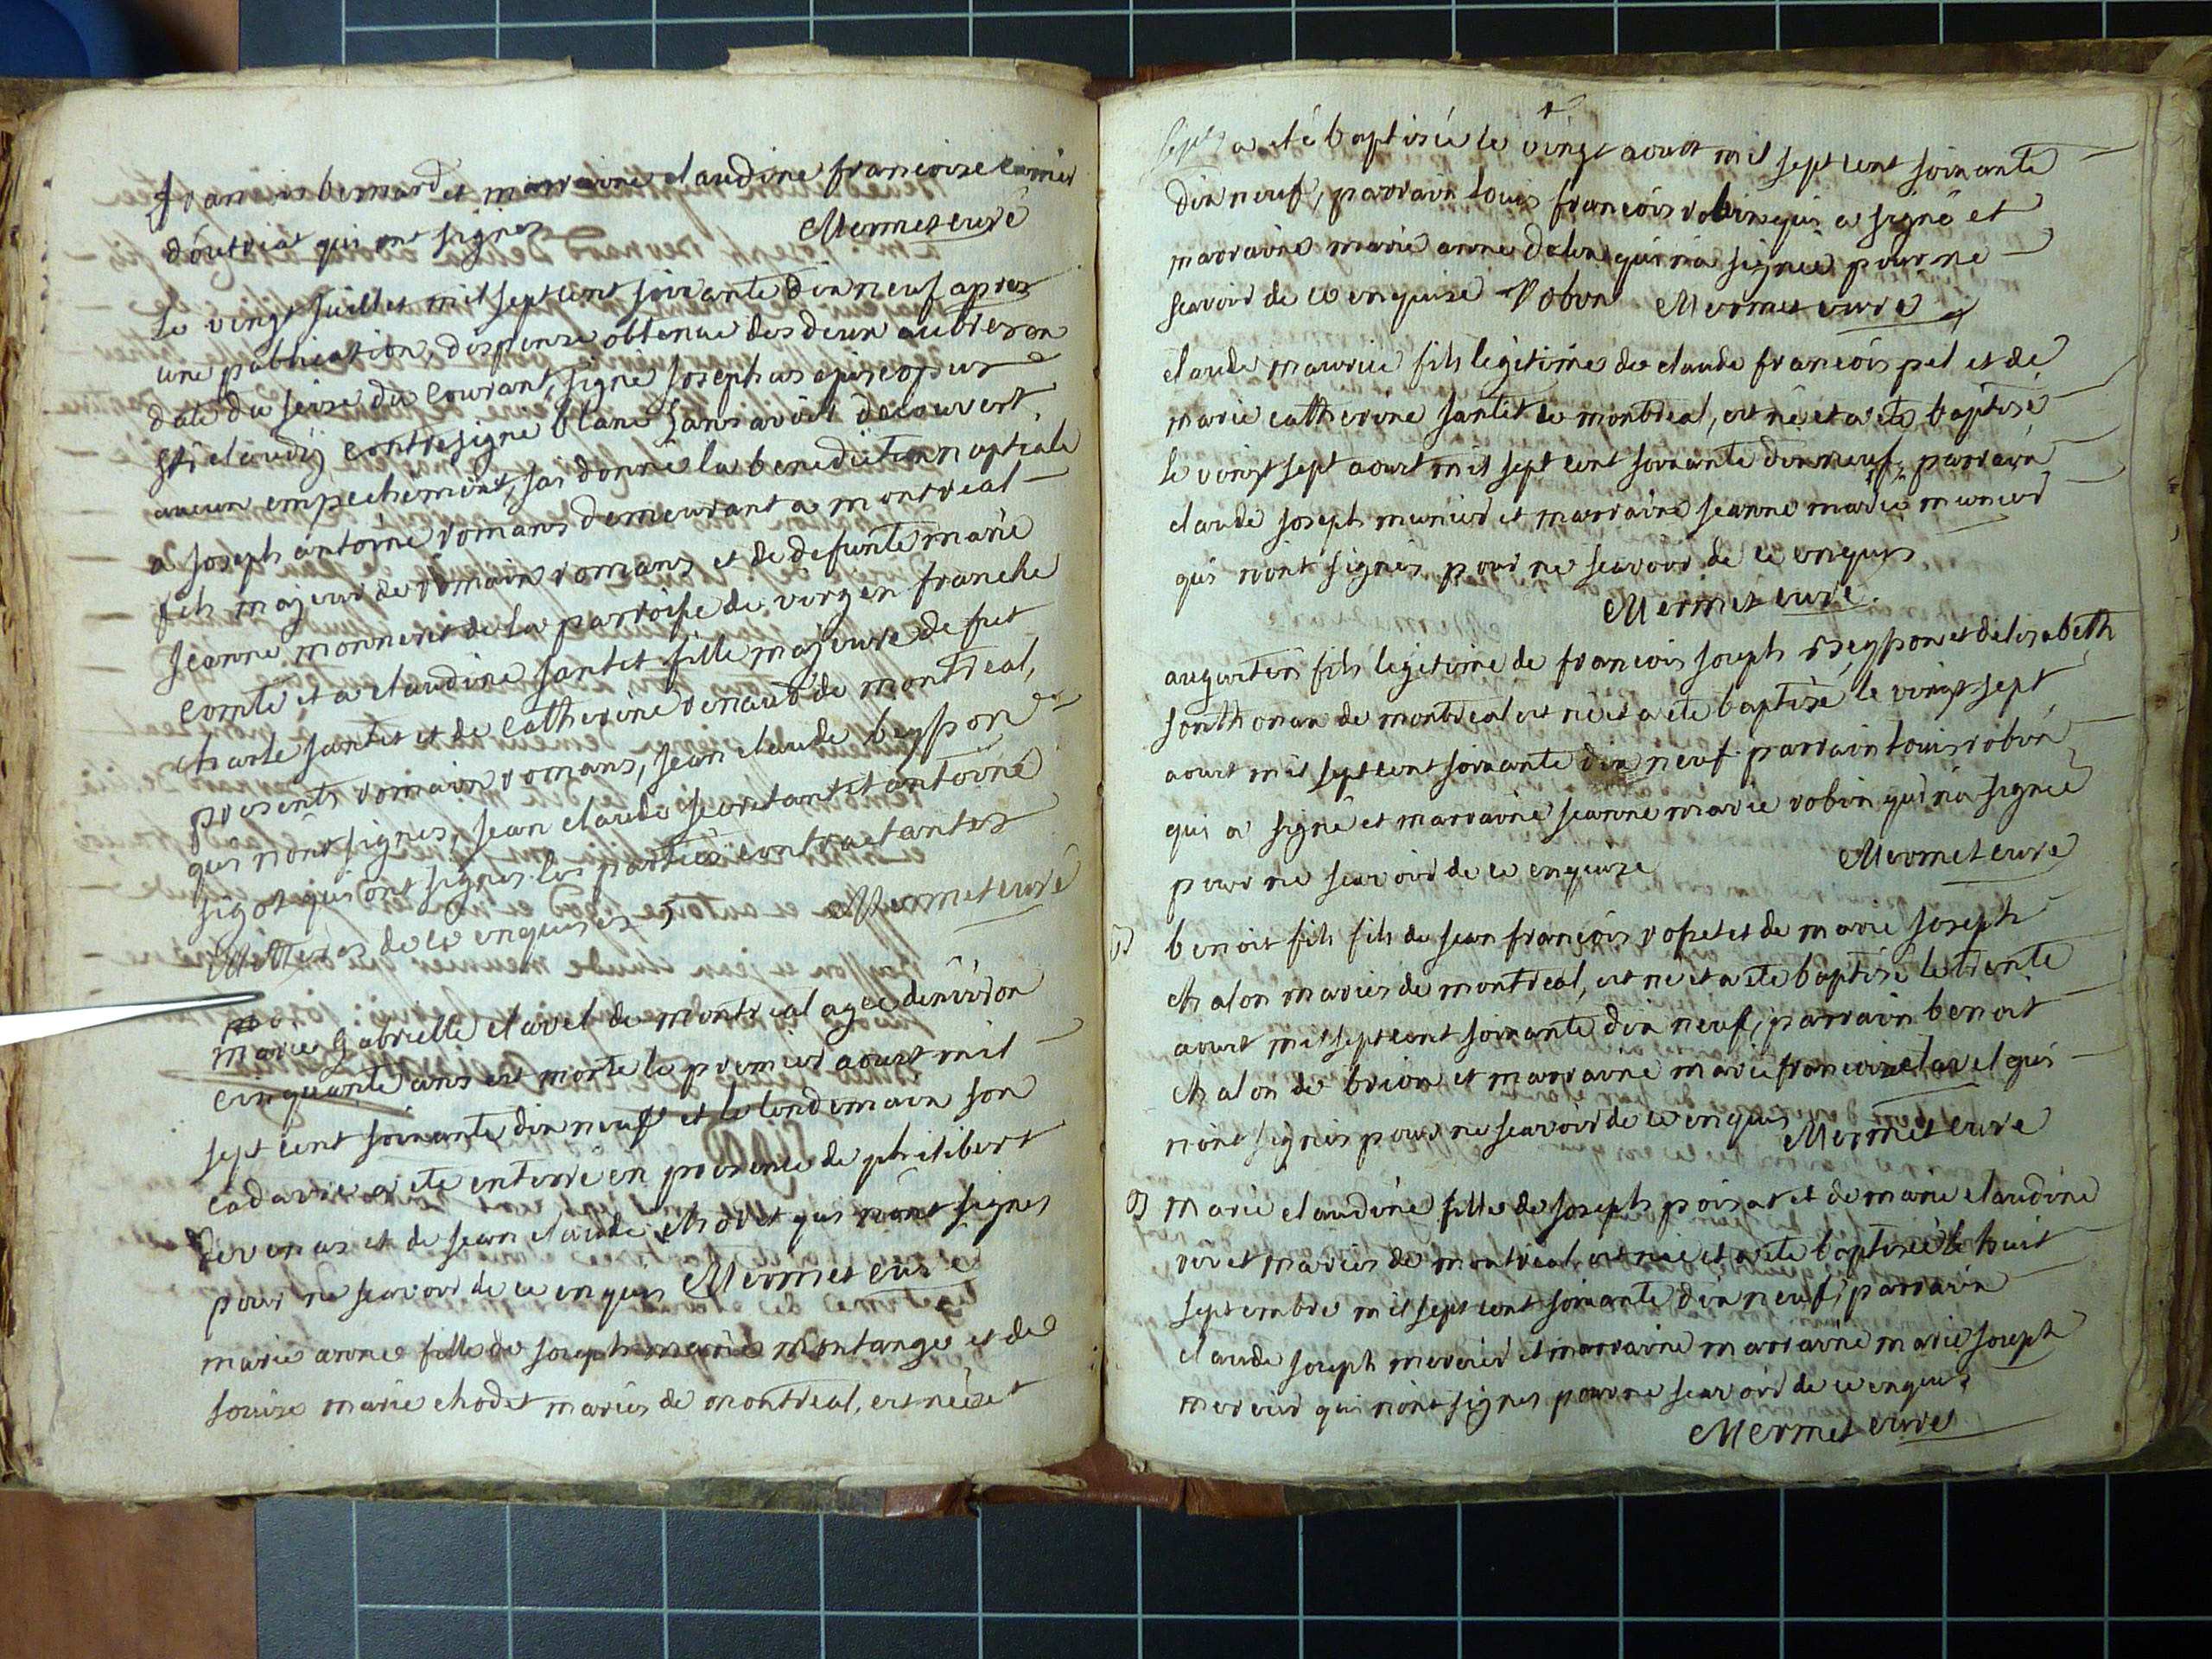 francois bernard et marraine claudine francoise
doutriat qui ont signes Mermet curé
Le vingt juillet mil sept cent soixante dix neuf apres
une publication, dispense obtenue des deux autres en
date du seise du courant, signé josephus episcopus
sti claudij contresigné blanc sans avoir decouvert
aucun empechement, jai donné la benediction nuptiale
a joseph antoine romans demeurant a montreal
fils majeur de romain romans et de defunte marie
jeanne monneret de la parroisse de franche
comté et a claudine jantet fille majeure de fut
charle jantet et de catherine renaud de montreal,
presents romain romans, jean claude beysson
qui nont signes, jean claude secretant et antoine
sigot qui ont signes les parties contractantes
de ce enquises Mermet curé
marie gabrielle clavel de montreal agee denviron
cinquante ans est morte le premier aoust mil
sept cent soixante dix neuf et le lendemain son
cadavre a ete enterré en presence de philibert
et de jean claude chodet qui nont signes
pour ne scavoir de ce enquis Mermet curé
marie anne fille de joseph marie montange et de
louise marie chodet mariés de montreal, est née et
a eté baptisée le vingt aoust mil sept cent soixante
dix neuf, parrain louis françois robin qui a signé et
marraine marie anne qui na signée pour ne
scavoir de ce enquise Robin Mermet curé
claude maurice fils legitime de claude françois pel et de
marie catherine jantet de montreal, est né et a ete baptisé
le vingt sept aoust mil sept cent soixante dix neuf, parrain
claude joseph munier et marraine jeanne marie munier
qui nont signés pour ne scavoir de ce enquis
Mermet curé.
augustin fils legitime de francois joseph Beysson et delisabeth
sonthonax de montreal est né et a ete baptisé le vingt sept
aoust mil sept cent soixante dix neuf parrain louis robin
qui a signé et marraine jeanne marie robin qui na signée
pour ne scavoir de ce enquise Mermet curé
benoit fils fils de jean françois rosset et de marie joseph
chalon mariés de montreal, est né et a ete baptisé le trente
aoust mil sept cent soixante dix neuf, parrain benoit
chalon de brion et marraine marie francoise clavel qui
nont signés pour ne scavoir de ce enquis Mermet curé
marie claudine fille de joseph poisat et de marie claudine
mariés de montreal est née et a ete baptisée le huit
septembre mil sept cent soixante dix neuf, parrain
claude joseph mercier et marraine marraine marie joseph
mercier qui nont signes pour ne scavoir de ce enquis
Mermet curé